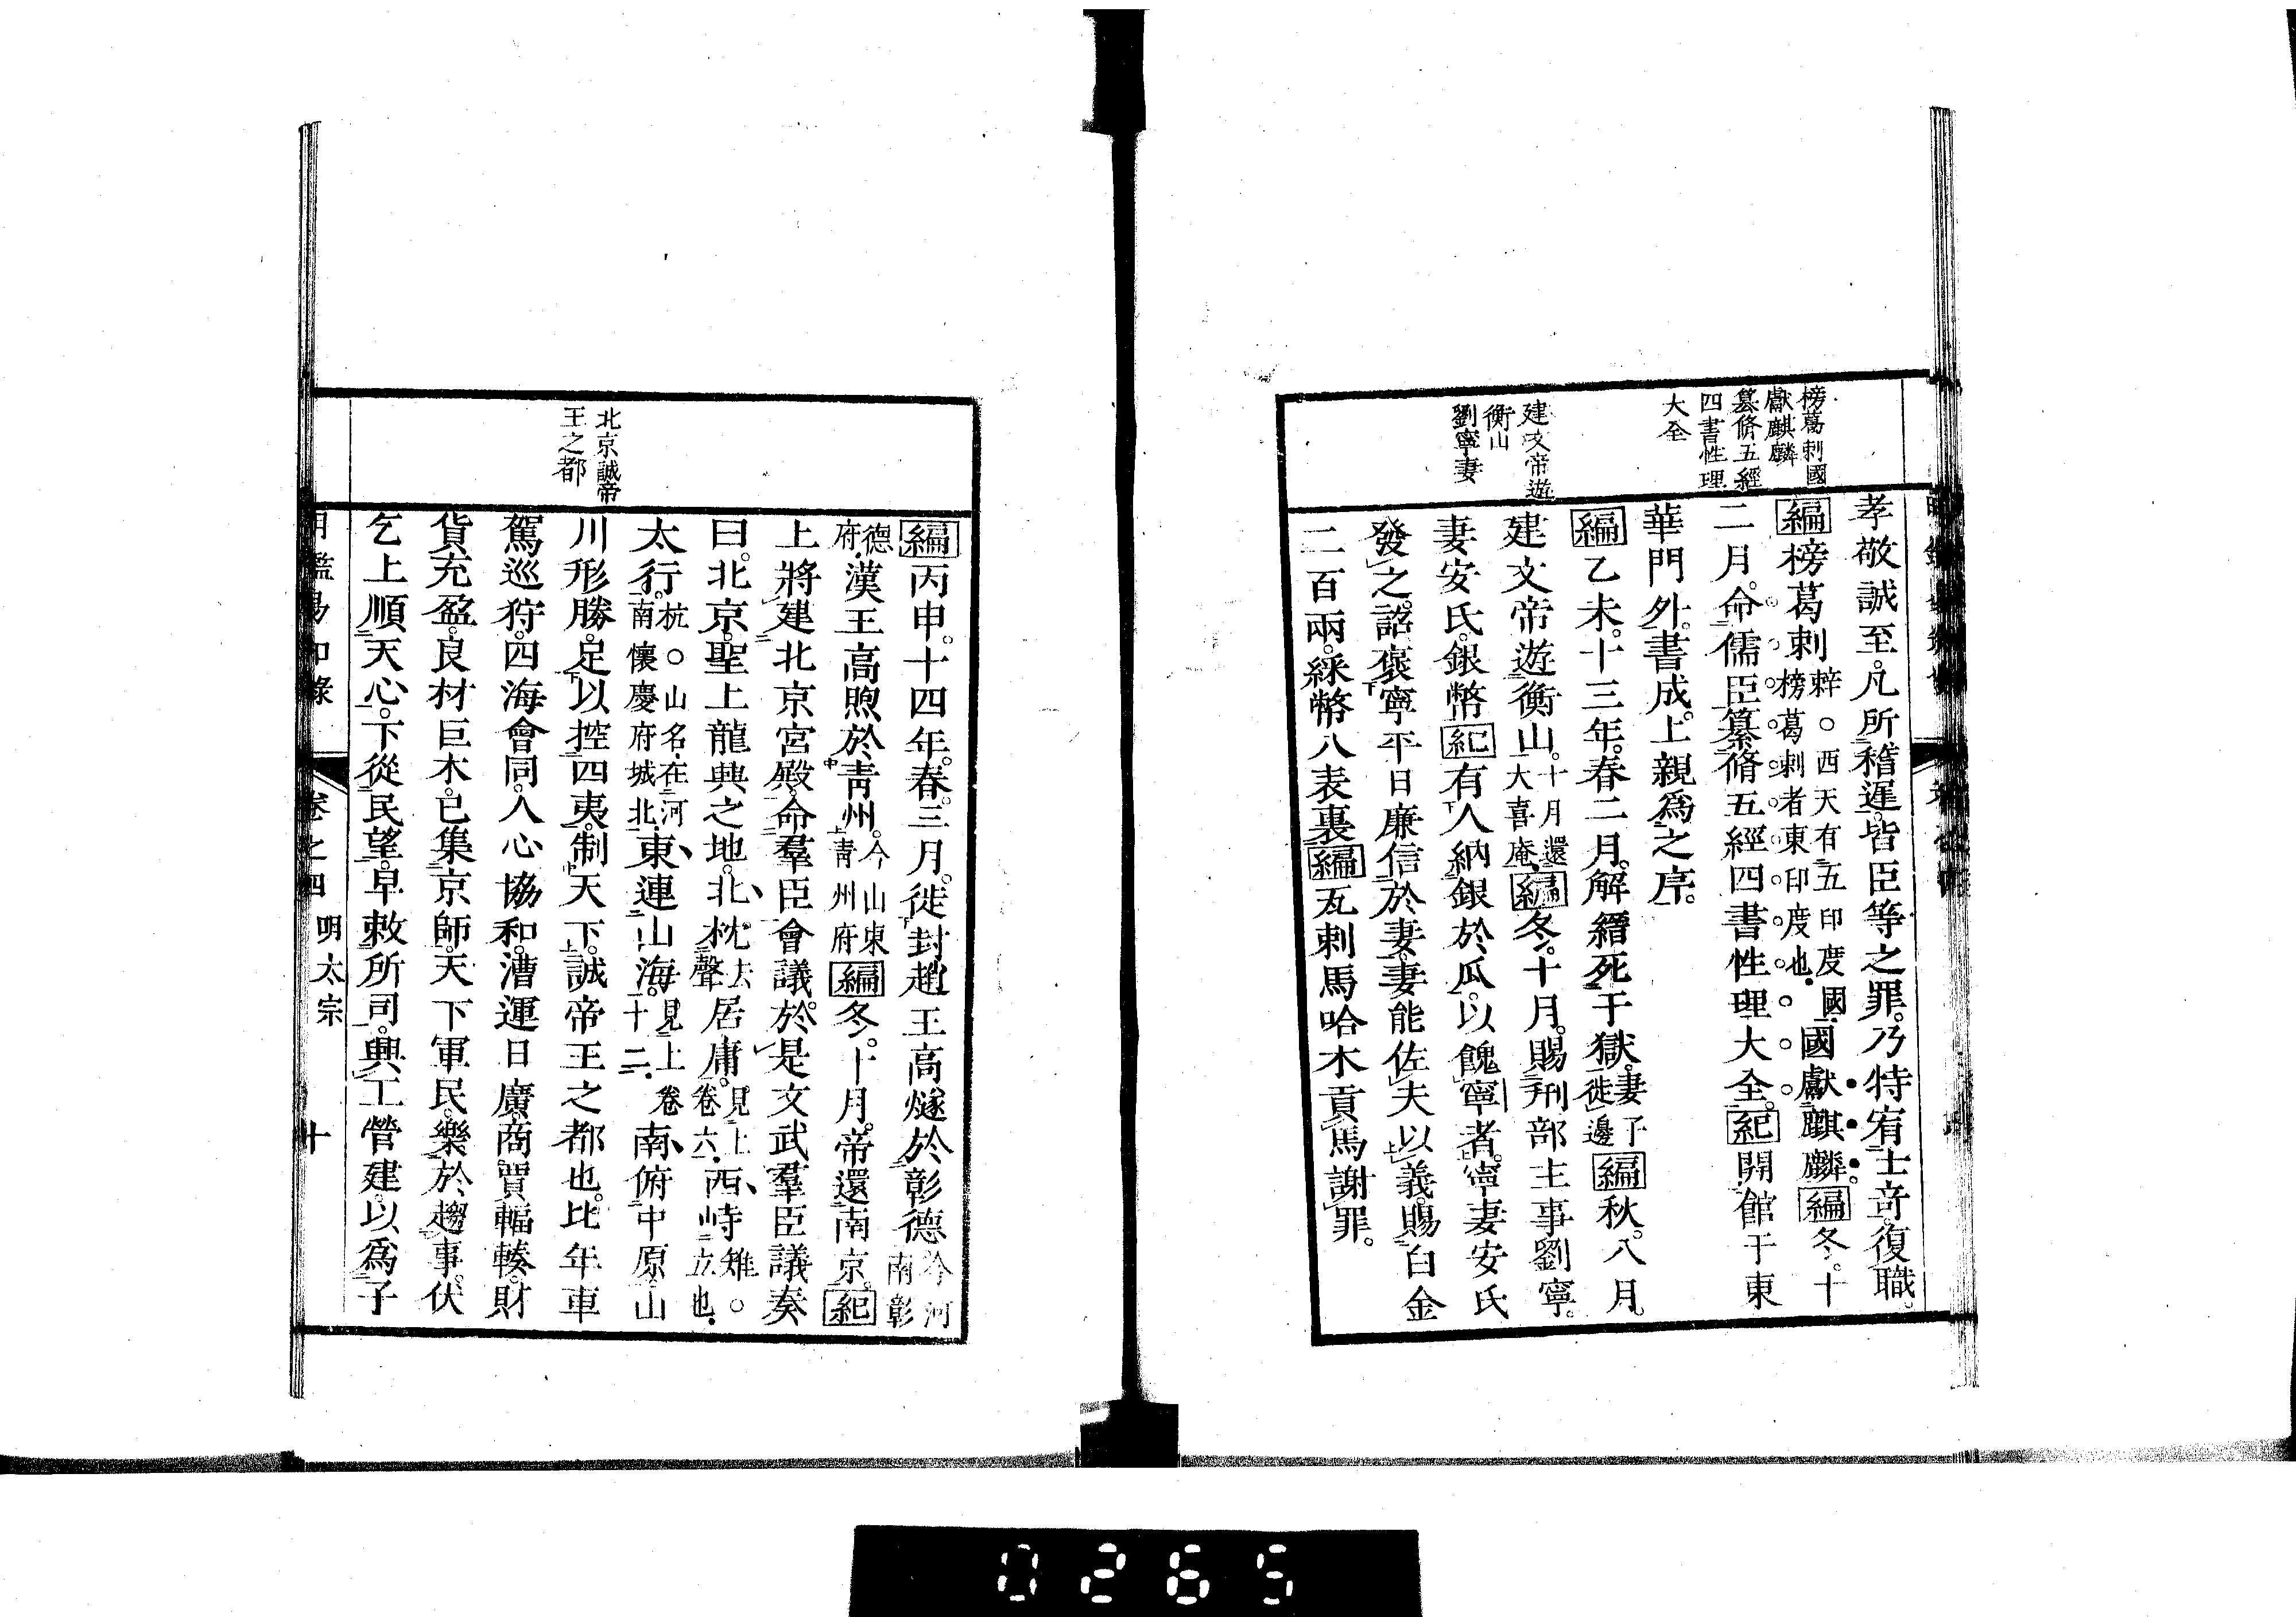 榜葛剌國
獻麒麟
纂脩五經
四書性理
大全
建文帝遊
衡山
劉寧妻
孝敬誠至。凡所稽遲。皆臣等之罪。乃特宥士奇。復職。
編榜葛剌辢○西天有五印度國。榜葛剌者東印度也。國獻麒麟。編冬。十
二月。命儒臣纂脩五經四書性理大全。紀開館于東
華門外。書成。上親爲之序。
編乙未。十三年。春二月。解縉死于獄。妻子徙邊編秋。八月。
建文帝遊衡山。十月還大喜庵編冬。十月。賜刑部主事劉寧。
妻安氏。銀幣紀有人納銀於瓜。以餽寧者。寧妻安氏
發之。詔褒寧平日廉信於妻。妻能佐夫以義。賜白金
二百兩。綵幣八表裏編瓦剌馬哈木貢馬謝罪。
北京誠帝
王之都
編丙申。十四年。春。三月。徙封趙王高燧於彰德今河南彰
德府。漢王高煦於青州。今山東青州府編冬。十月。帝還南京。紀
上將建北京宮殿。命羣臣會議。於是文武羣臣議奏
曰。北京。聖上龍興之地。北枕去聲居庸。見上卷六西峙雉○山立也
太行。杭○山名。在河南懷慶府城北東連山海。見上卷十二南俯中原。山
川形勝。足以控四夷。制天下。誠帝王之都也。比年車
駕巡狩。四海會同。人心協和。漕運日廣。商賈輻輳。財
貨充盈。良材巨木。已集京師。天下軍民。樂於趨事。伏
乞上順天心。下從民望。早敕所司。興工營建。以爲子
卷之四 明太宗 十
0265